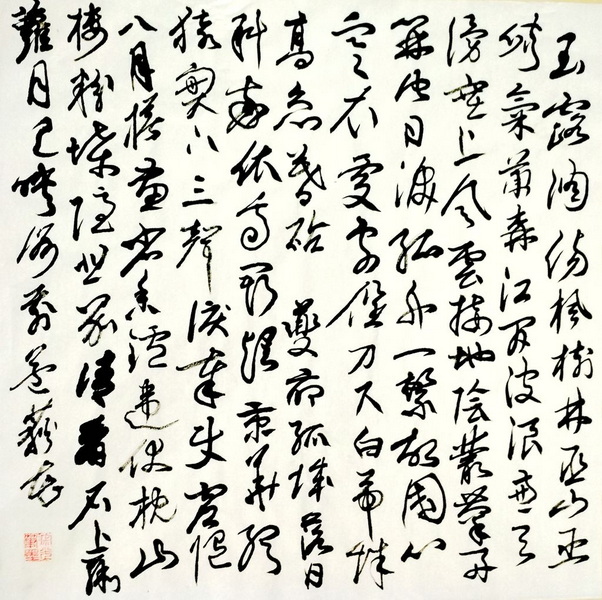 玉露凋傷楓樹林巫山巫
峽氣蕭森江間波浪兼天
湧塞上風雲接地陰叢菊兩
開他日淚孤舟一繫故園心
寒衣處處催刀尺白帝城
高急暮砧 夔府孤城落日
斜每依南斗望京華聽
猿實下三聲淚奉使虛隨
八月槎畫省香爐違伏枕山
樓粉堞隱悲笳請看石上藤
蘿月已映洲前蘆荻花